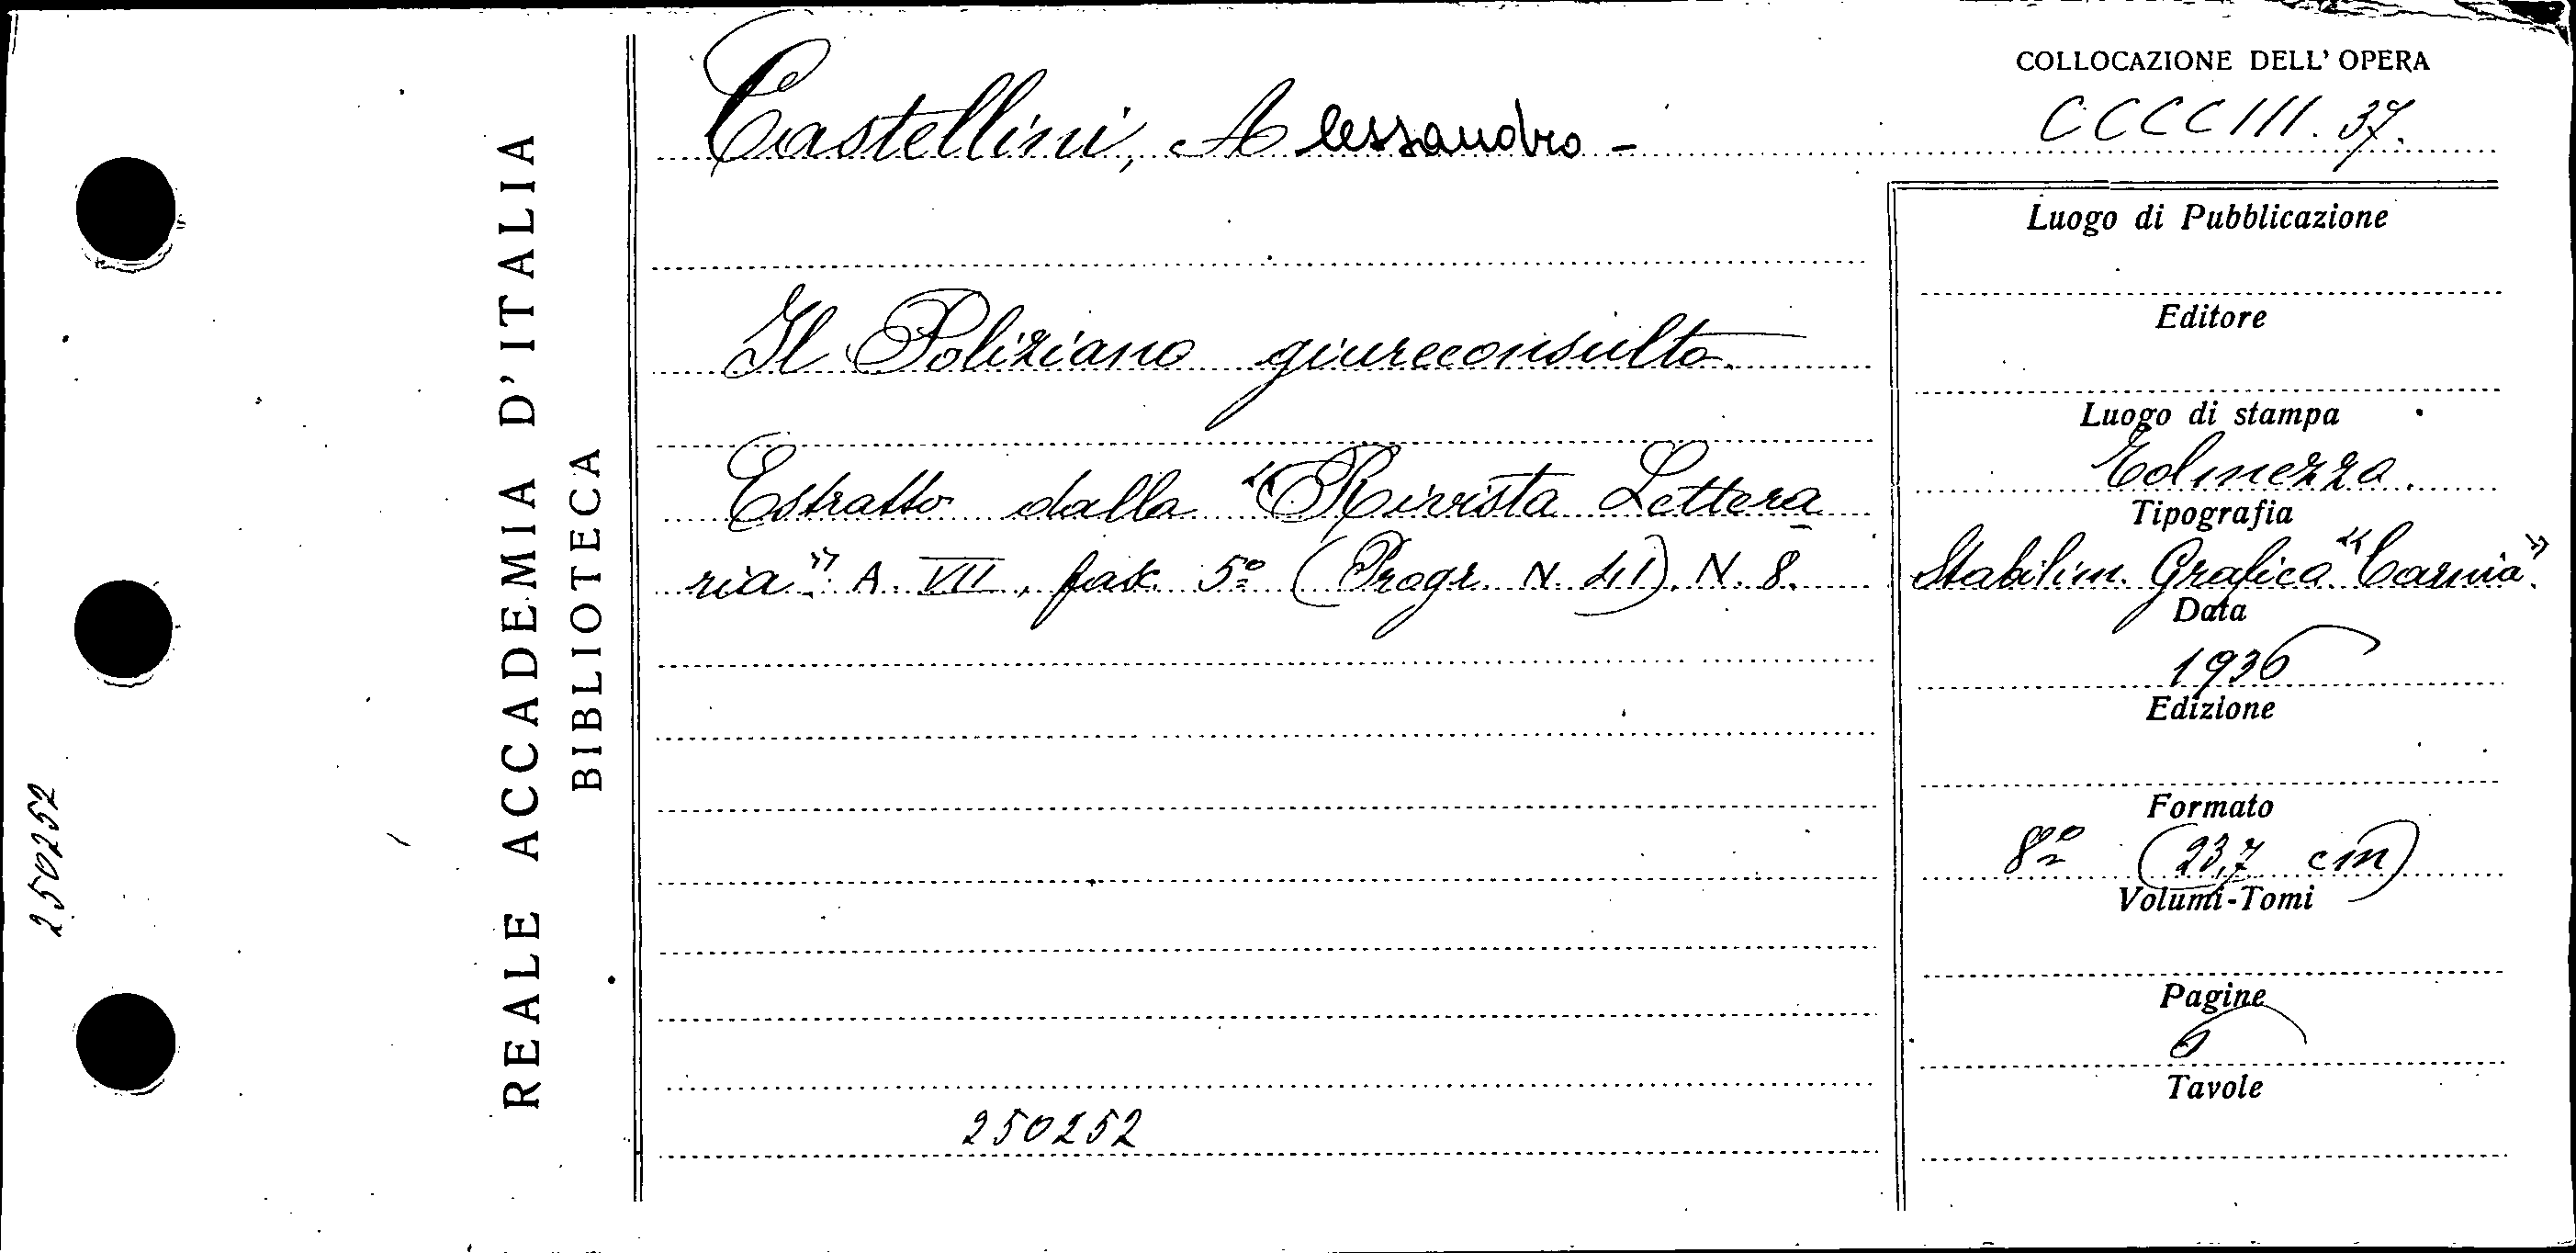 COLLOCAZIONE DELL' OPERA
CCCCIII. 37.
Castellini, Alessandro -
Il Poliziano giureconsulto.
Estratto dalla "Rivista Lettera
ria". A. VII, fasc. 5º (Progr. N. 41). N. 8.
250252
Luogo di Pubblicazione
Editore
Luogo di stampa
Tolmezzo.
Tipografia
Stabilim. Grafico "Carnia".
Data
1936
Edizione
Formato
8º (23,7 cm)
Volumi-Tomi
Pagine
6
Tavole
REALE ACCADEMIA D'ITALIA
BIBLIOTECA
250252